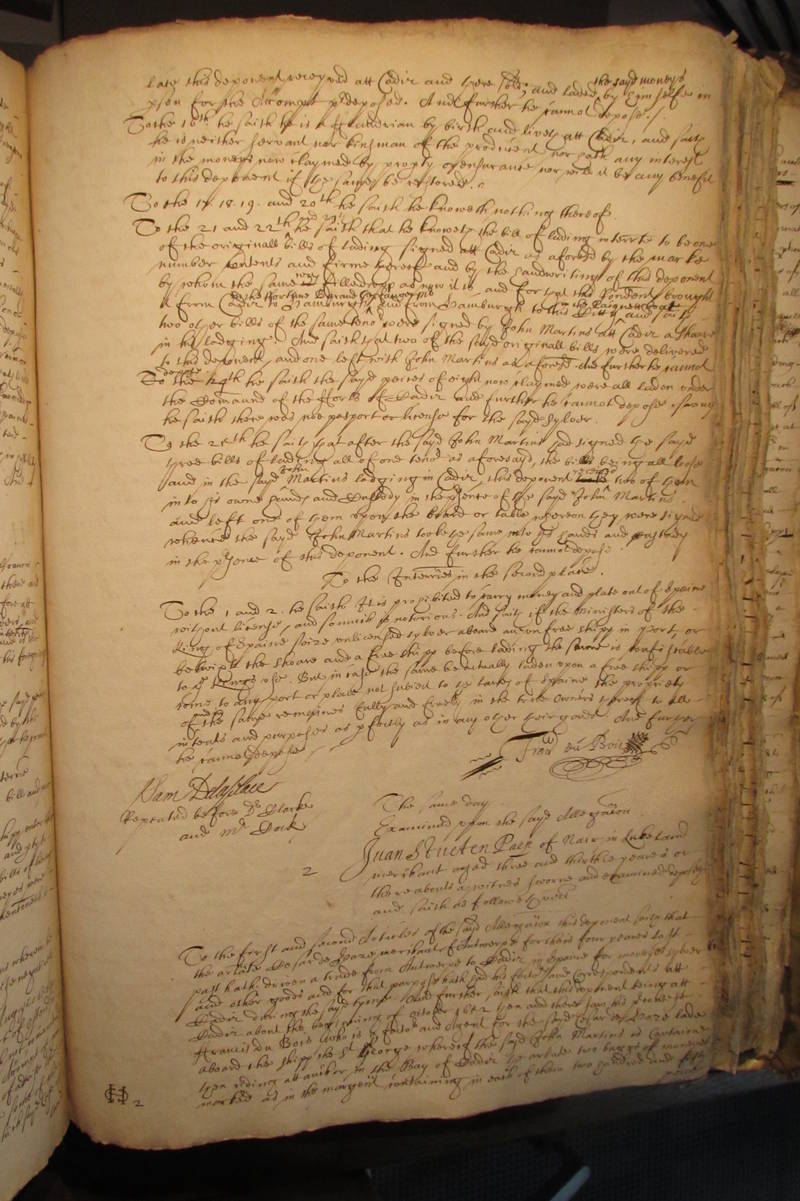 late this deponent received att Cadiz and there sold, and laded the sayd moneys by him selfe in
pson for the Accompt predeposed. And further he cannot depose./
To the 16th he saith he is a by birth and lives att Cadiz, and saith
he is neither servant nor kinsman of the producent nor hath any interest
in the moneys now claymed by propty or ensurance nor will it be any benefit
to this deponent if the same be restored./
To the 17. 18. 19. and 20th he saith he knoweth nothing thereof
To the 21 and 22th he saith that he knoweth the bill of lading interrte to be one
of the originall bills of lading signed att Cadiz as aforesd by the marke
number contents and firme thereof and by the handwriting of this deponent
by whom the same was filled up as now it is, and for that this deponent brought
it from Cadiz to Hamburgh and from Hamburgh to this Citty and saith
two other bills of the same teno were signed by John Martins att Cadiz aboard
in his lodging. And saith that two of the sayd originall bills were delivered
to this deponent, and one left with John Martins as aforesd. And further he cannot
depose
To the 24th he saith the sayd peeces of eight now claymed were all laden under
the Command of the Forts of Cadiz and further he cannot depose saving
he saith there was noe pasport or license for the sayd sylver.
To the 25th he saith that after the sayd John Martins had signed the sayd
three bills of lading all of one teno as aforesaid, the bills being all loose
and in the sayd John Martins lodging in Cadiz, this deponent two of them
in to his owne hands and Custody in the psence of the sayd John Martins
and left one of them upon the board or table whereon they were signed
whence the sayd John Martins tooke the same into his hands and custody
in the psence of this deponent. And further he cannot depose
To the Interries in the second place.
To the 1 and 2. he saith It is prohibited to carry money and plate out of Spaine
without license, and soe much is notorious. And saith if the ministers of the
King of Spaine seize unlicensed sylver aboard an unfree shipp in port, or
betwixt the shoare and a free shipp before lading the same is confiscable
to ye Kings use. But in case the same be actually laden upon a free shipp or
come to any port or place not subject to ye King of Spaine the propriety
of the same remaines fully and freely in the true owners thereof to all
intents and purposes as pfectly as in any other their goods. And further
he cannot depose
Fran du Bois
Sam Delaplace
Repeated before Dr Clarke
and Mr Cock
The same day
Examined upon the sayd Allegaton
2
Juan Stueten Paep of in Lukeland
merchant aged three and thirtie yeares or
thereabouts a witnes sworne and examined deposeth
and saith as followeth vizt
To the first and second Articles of the sayd Allegaton this deponent saith that
the arlate Cesar de Boze merchant of Antwerpe for theis four yeares last
past hath driven a trade from Antwerpe to Cadiz in Spaine for moneys sylver
and other goods and for that purpose hath had his factors and Correspondents att
Cadiz during the sayd tyme. And further saith that this deponent being att
Cadiz about the beginning of October 1652 then and there saw his
Francis du Bois (who is ye factor and Agent for the sayd Cesar de Boze lade
aboard the shipp the St George whereof the sayd John Martins is Captaine
then riding att anchor in the Bay of Cadiz ye arlate two baggs of moneys
marked as in the margent containing in each of them two hundred and fifty
2